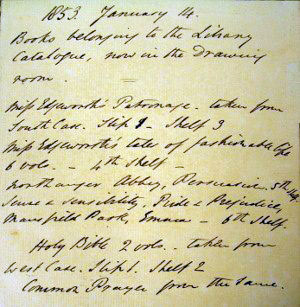 1853. January 14.
Books belonging to the Library
Catalogue, now in the Drawing
room.
Miss Edgworth's Patronage. taken from
South Case. Slip 1 - Shelf 3
Miss Edgeworth's tales of fashionable life
6 vols. - 4th Shelf -
Northanger Abbey, Persuasion. 5th Shelf.
Sense & sensibility, Pride & Prejudice,
Mansfield Park, Emma - 6th Shelf.
Holy Bible 2 vols. taken from
West Case. Slip 1. Shelf 2
Common Prayer from the same.